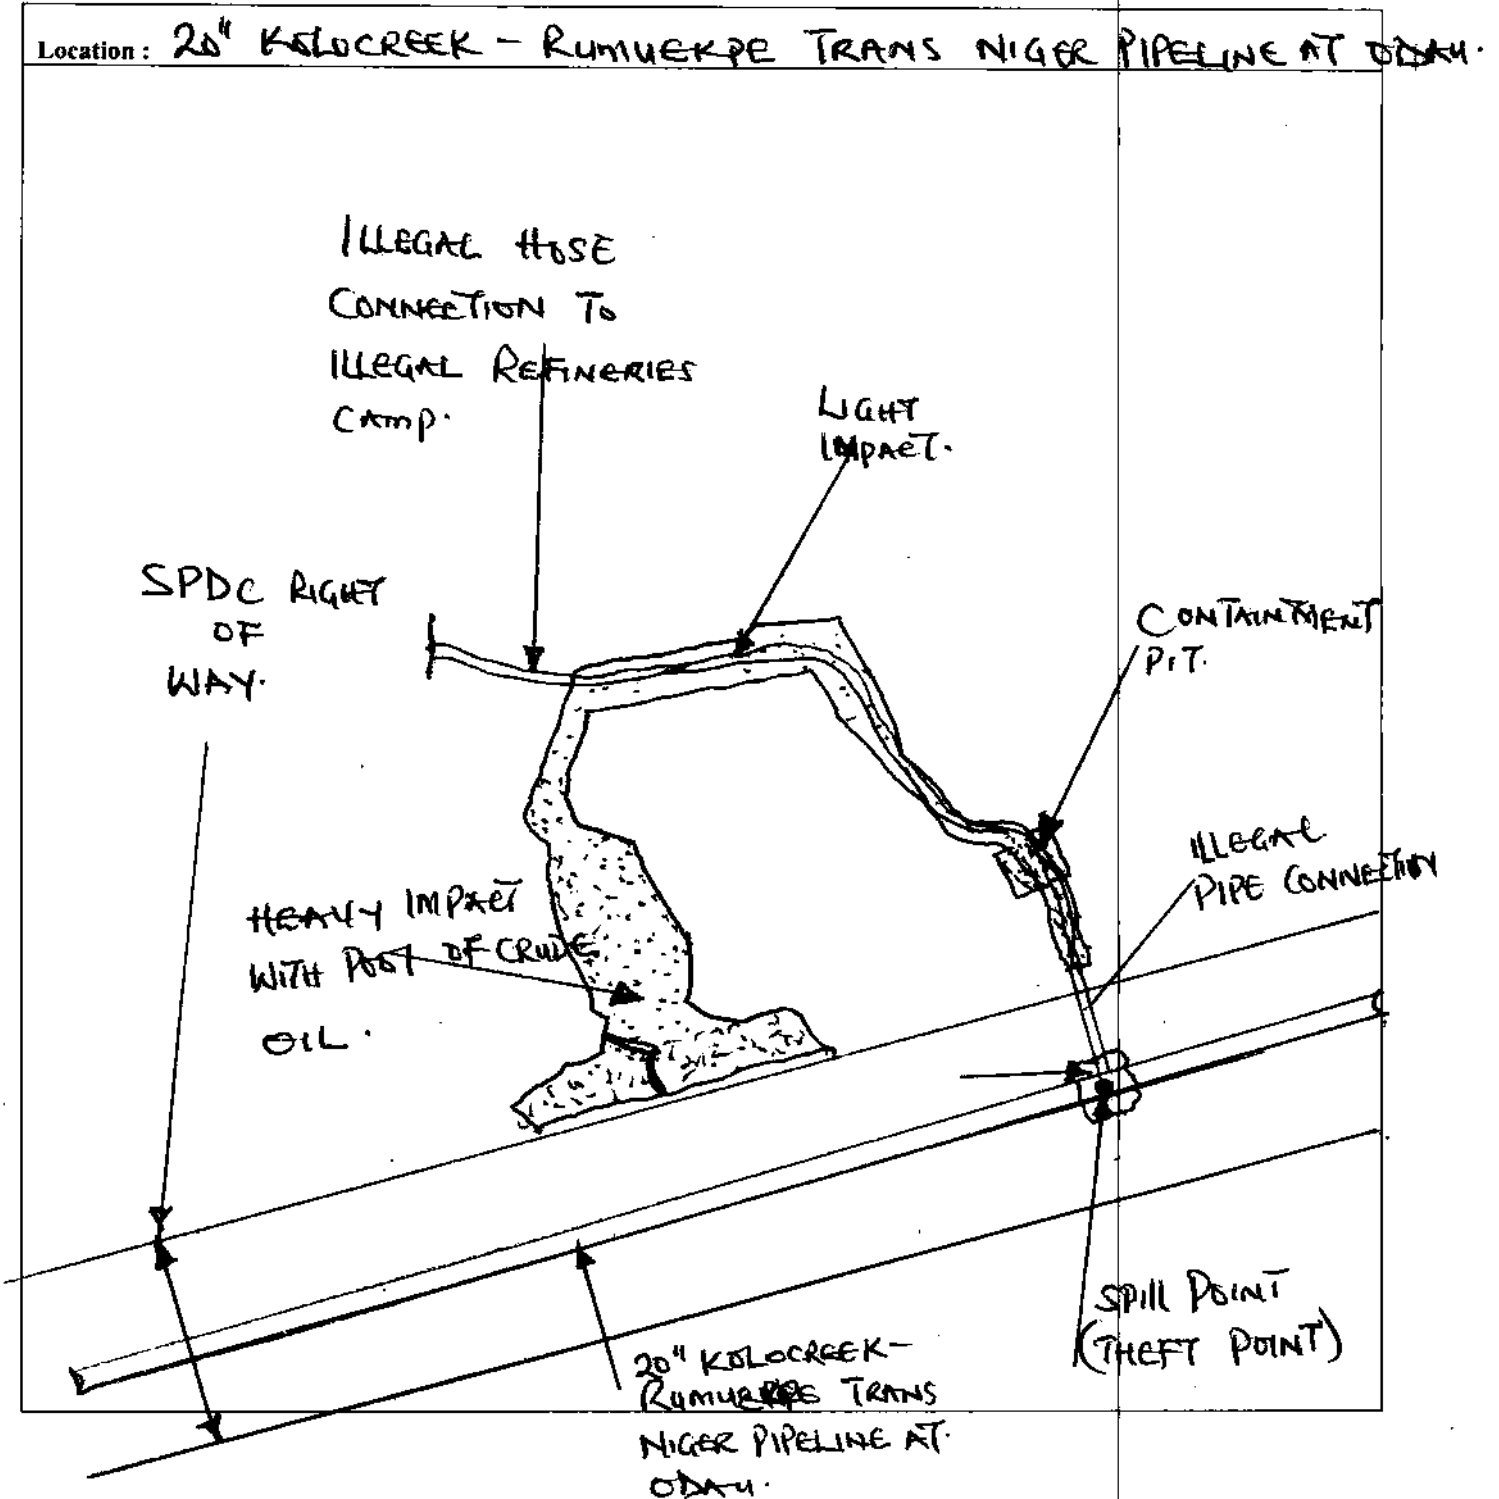 Location : 20" KOLOCREEK - RUMUEKPE TRANS NIGER PIPELINE AT ODAU.
ILLEGAL HOSE
CONNECTION TO
ILLEGAL REFINERIES
CAMP.
LIGHT
IMPACT.
SPDC RIGHT
OF
WAY.
CONTAINMENT
PIT.
ILLEGAL
PIPE CONNECTION
HEAVY IMPACT
WITH POOL OF CRUDE
OIL.
SPILL POINT
(THEFT POINT)
20" KOLOCREEK-
RUMUEKPE TRANS
NIGER PIPELINE AT.
ODAU.